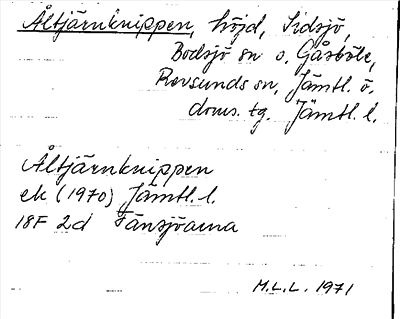 Åltjärnknippen, höjd, Sidsjö,
Bodsjö sn o. Gåsböle,
Revsunds sn, Jämtl. ö.
doms. tg. Jämtl. l.
Åltjärnknippen
ek (1970) Jämtl. l.
18F 2d Tänsjöarna
M.L.L. 1971